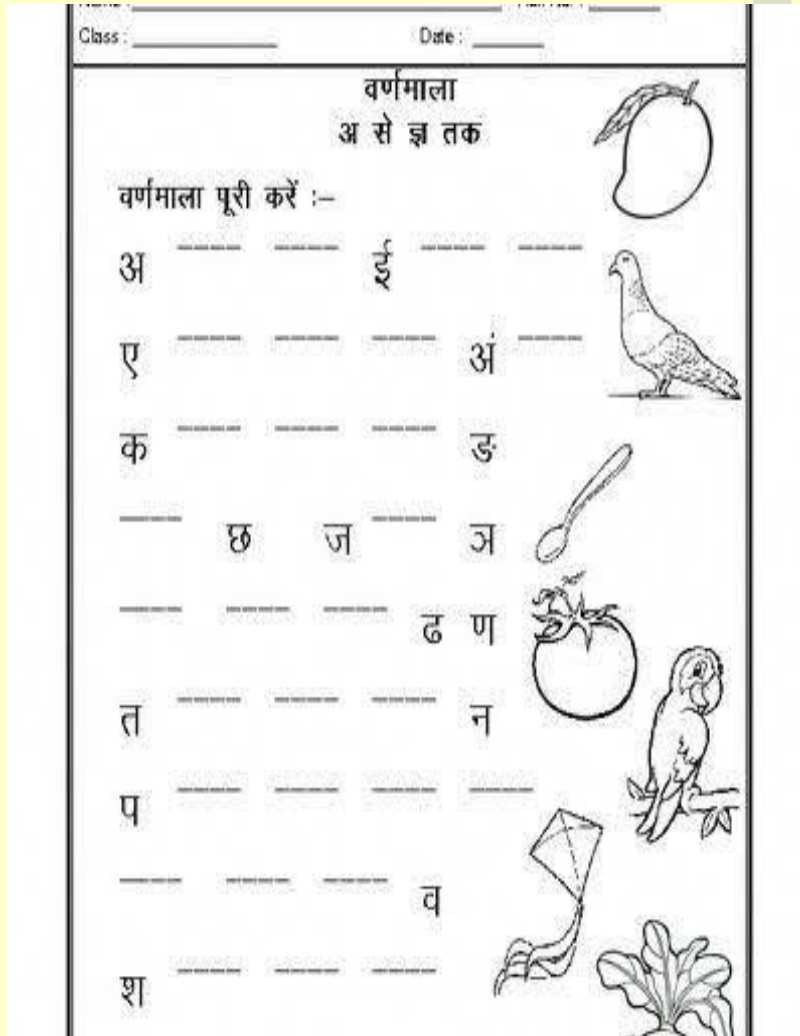 Class : ____________ Date : ______
वर्णमाला
अ से ज्ञ तक
वर्णमाला पूरी करें :–
अ ---- ---- ई ---- ----
ए ---- ---- ---- अं ----
क ---- ---- ---- ङ
---- छ ज ---- ञ
---- ---- ---- ढ ण
त ---- ---- ---- न
प ---- ---- ---- ----
---- ---- ---- व
श ---- ---- ----